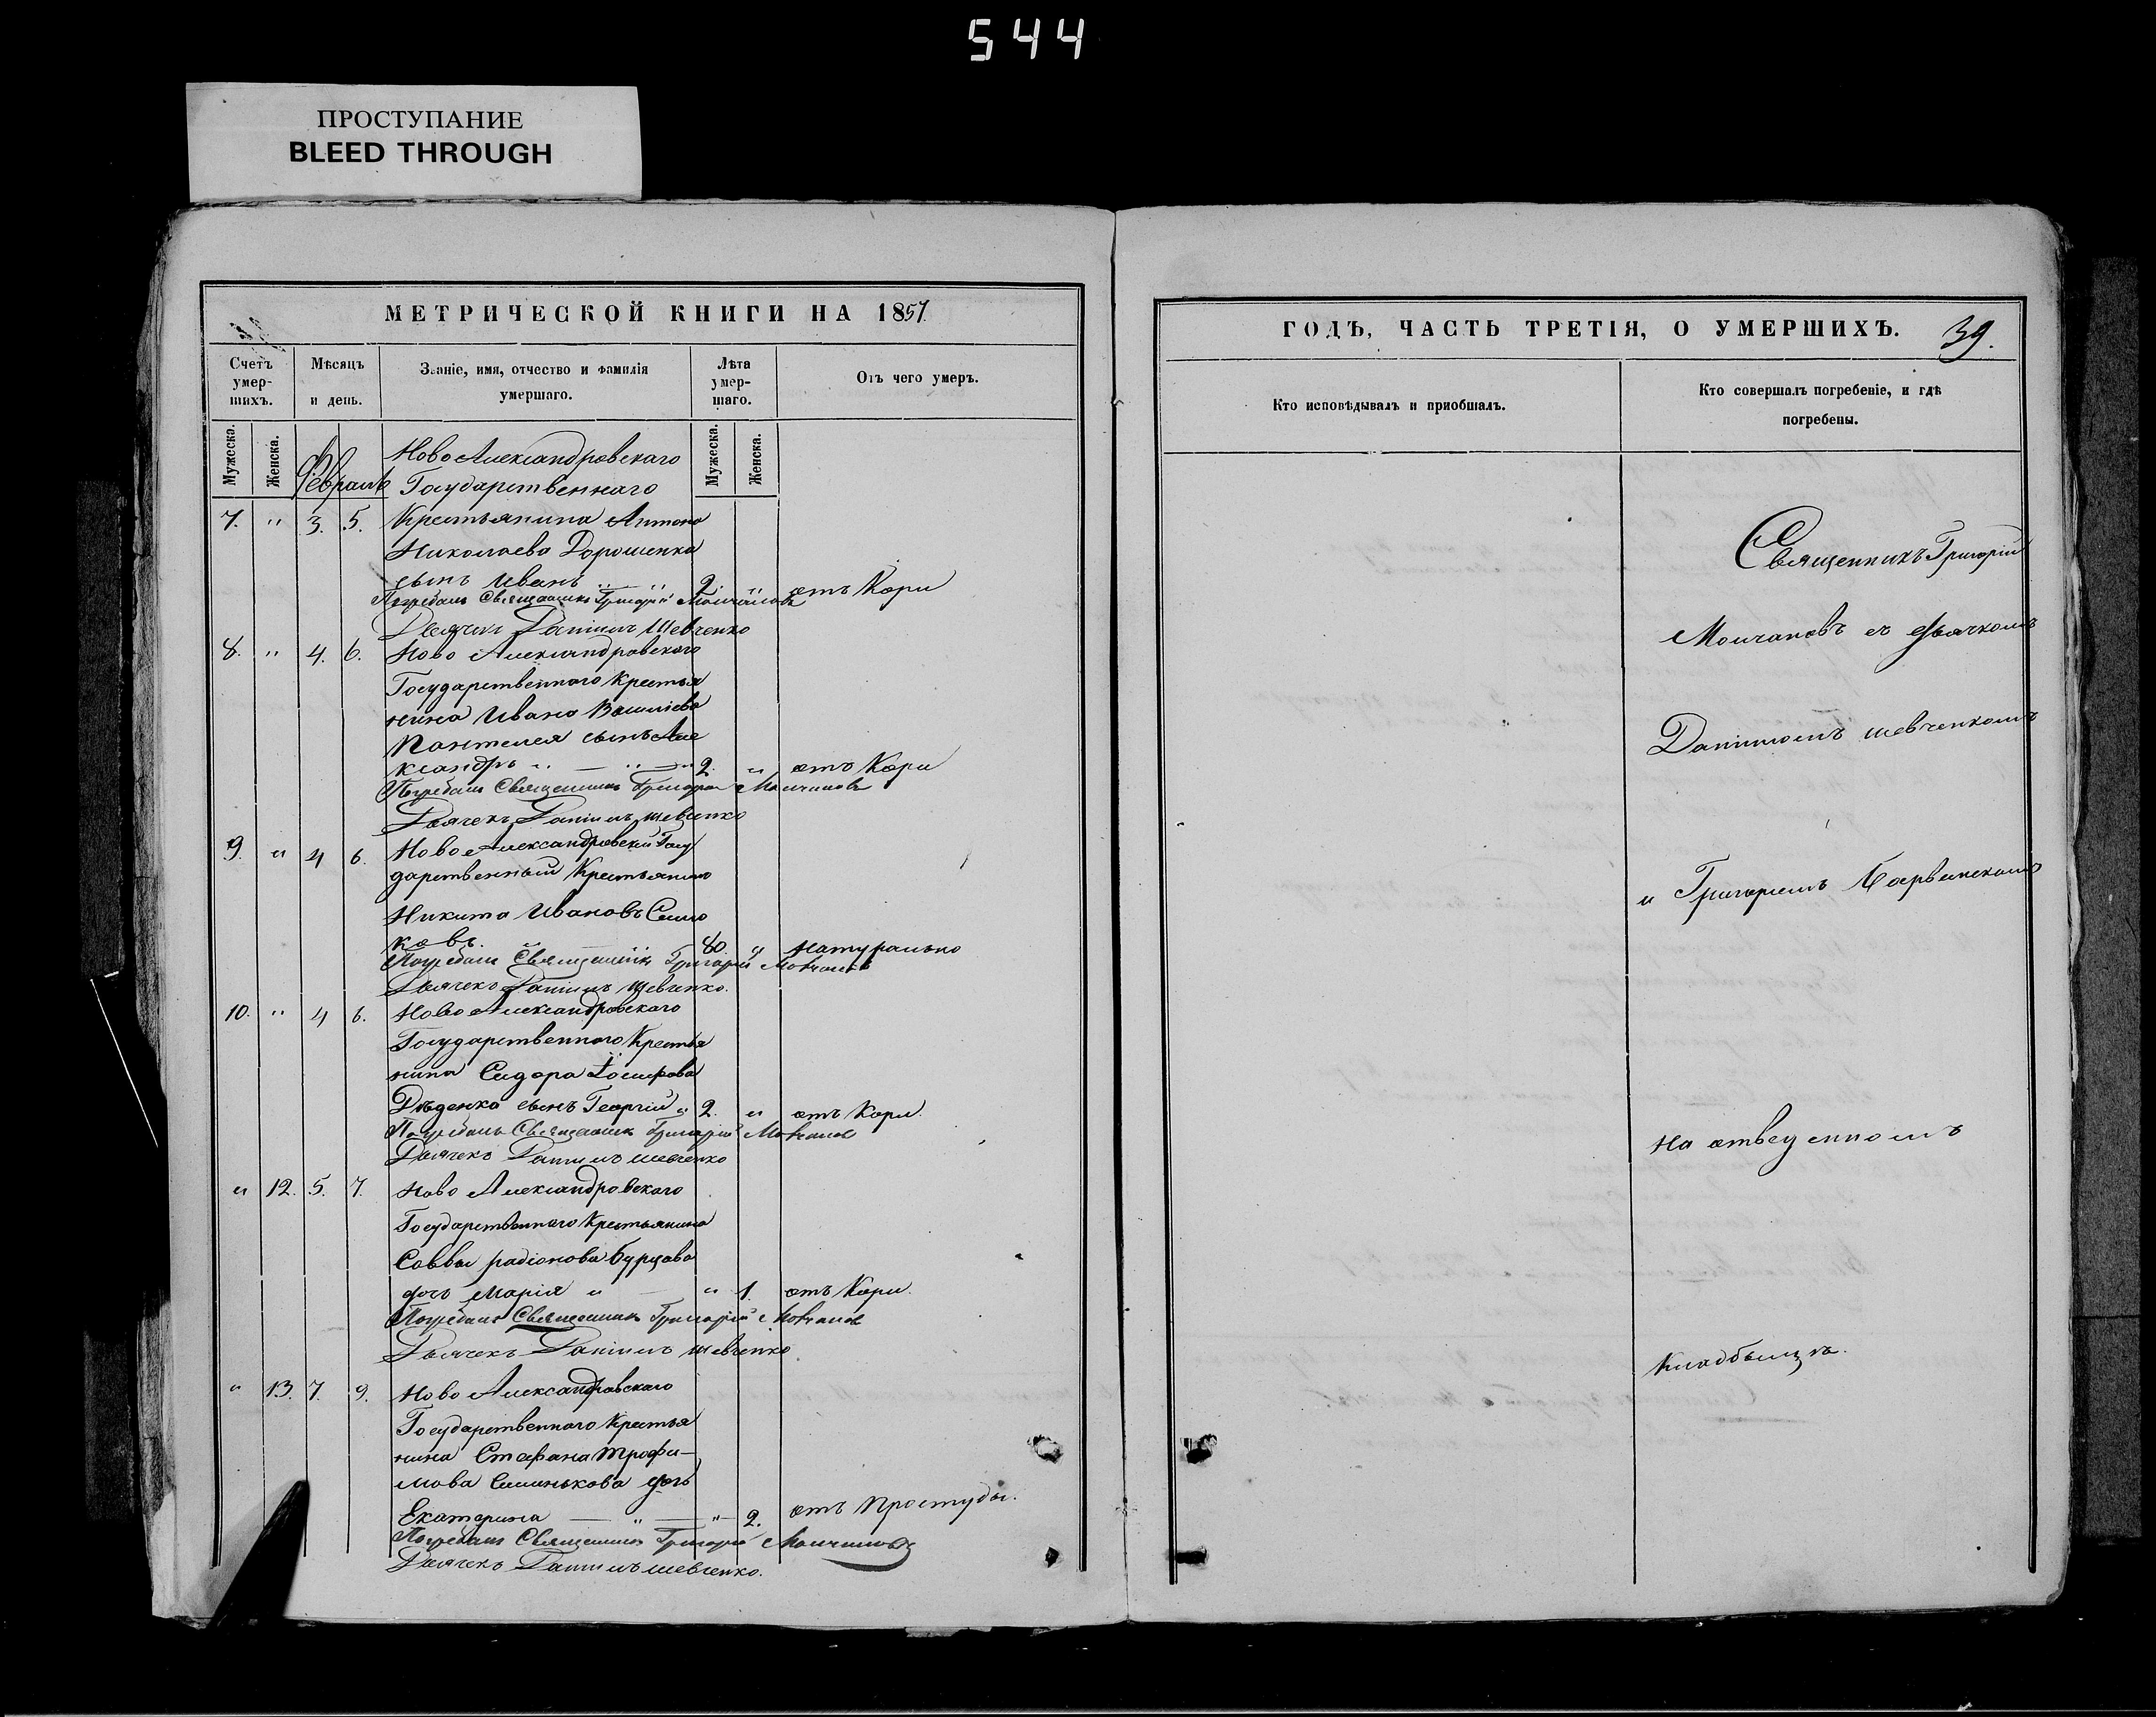 544
ПРОСТУПАНИЕ
BLEED THROUGH
МЕТРИЧЕСКОЙ КНИГИ НА 1857.
Счетъ умер-шихъ.
Мѣсяцъ и день.
Званіе, имя, отчество и фамилія умершаго.
Лѣта умер-шаго.
Отъ чего умеръ.
Мужеска.
Женска.
Мужеска.
Женска.
Февраль
Ново Александровскаго
Государственнаго
7. " 3. 5. Крестьянина Антона
Николаева Дорошенка
сынъ Иванъ 2. " отъ Кори
Погребалъ Священникъ Григорій Молчановъ
Дьячекъ Даніилъ Шевченко
8. " 4. 6. Ново Александровскаго
Государственнаго Крестья
нина Ивана Василіева
Пантелея сынъ Але
ксандръ " — " — 2. " отъ Кори
Погребалъ Священникъ Григорій Молчановъ
Дьячекъ Даніилъ Шевченко
9. " 4 6. Ново Александровскій Госу
дарственный Крестьянинъ
Никита Ивановъ
ковъ. 80. " Натурально
Погребалъ Священникъ Григорій Молчановъ
Дьячекъ Даніилъ Шевченко.
10. " 4 6. Ново Александровскаго
Государственнаго Крестья
нина Сидора Іосифова
Дѣденка сынъ Георгій " 2. " отъ Кори.
Погребалъ Священникъ Григорій Молчановъ
Дьячекъ Даніилъ Шевченко
" 12. 5. 7. Ново Александровскаго
Государственнаго Крестьянина
Саввы Радіонова Бурцава
дочь Марія " — " 1. отъ Кори.
Погребалъ Священникъ Григорій Молчановъ
Дьячекъ Даніилъ Шевченко
" 13. 7. 9. Ново Александровскаго
Государственнаго Крестья
нина Стефана Трофи—
мова Симинькова дочь
Екатерина — " — " — 2. отъ Простуды.
Погребалъ Священникъ Григорій Молчановъ
Дьячекъ Даніилъ Шевченко.
ГОДЪ, ЧАСТЬ ТРЕТІЯ, О УМЕРШИХЪ. 39.
Кто исповѣдывалъ и пріобщалъ.
Кто совершалъ погребеніе, и гдѣ погребены.
Священникъ Григорій
Молчановъ съ Дьячкомъ
Даніиломъ Шевченкомъ
и Григоріемъ
На отведенномъ
Кладбыщѣ.